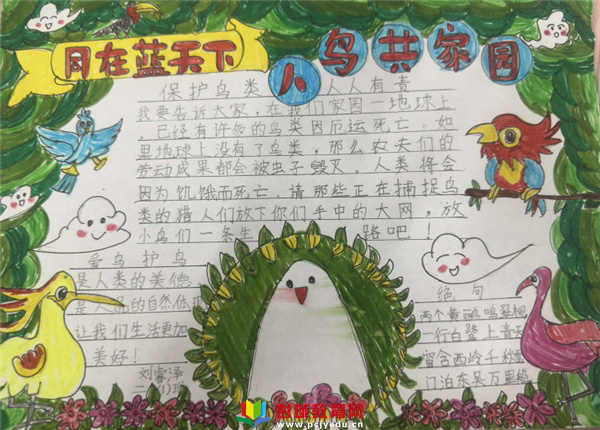 同在蓝天下
人鸟共家园
保护鸟类 人人有责
我要告诉大家，在我们家园一地球上
，已经有许多的鸟类因厄运死亡。如
果地球上没有了鸟类，那么农夫们的
劳动成果都会被虫子毁灭。人类将会
因为饥饿而死亡。请那些正在捕捉鸟
类的猎人们放下你们手中的大网，放
小鸟们一条生路吧！
爱鸟护鸟
是人类的美德
是人 的自然体
让我们生活更加
美好！
刘睿
绝句
两个黄鹂鸣翠柳
一行白鹭上青天
窗含西岭千秋
门泊东吴万里船
www.pcjyedu.cn